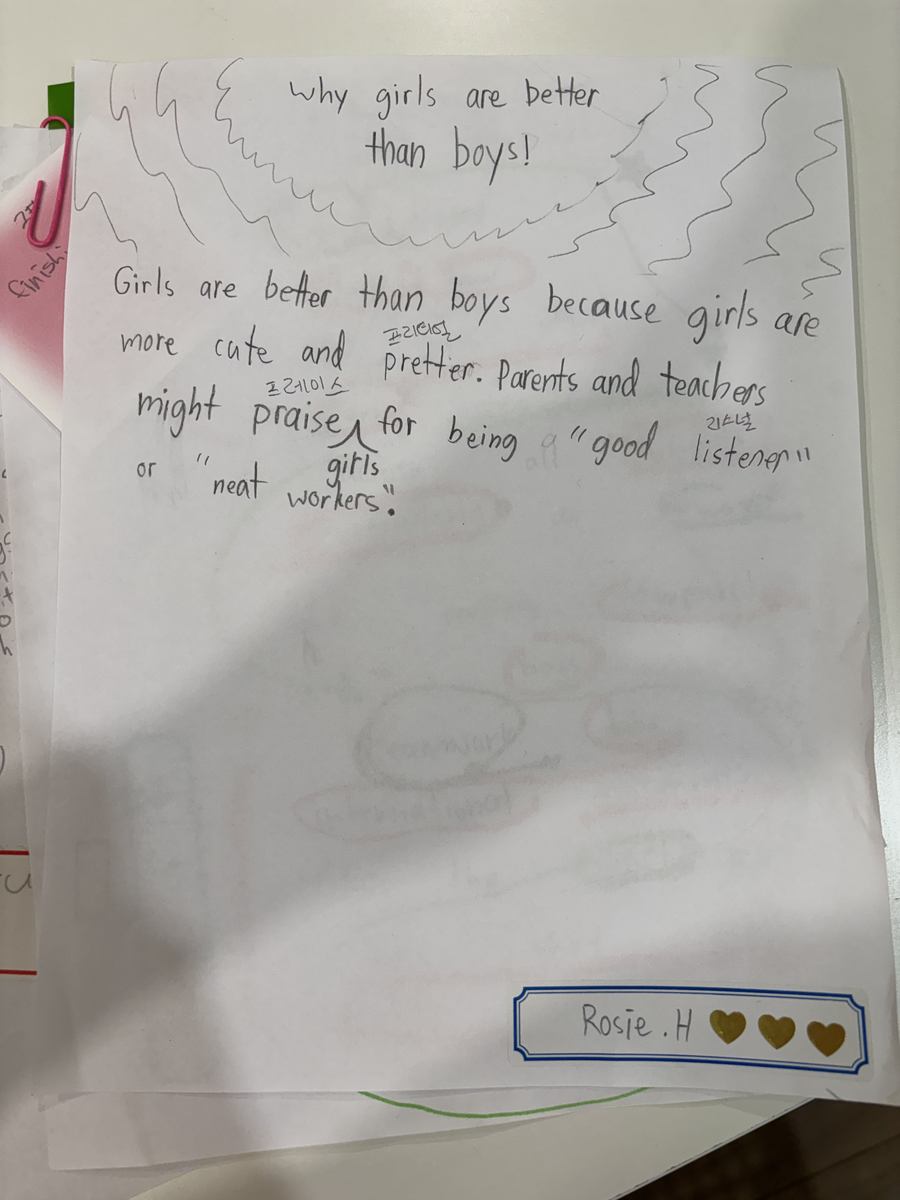 why girls are better
than boys!
Girls are better than boys because girls are
프리티얼
more cute and prettier. Parents and teachers
프레이스
리스널
might praise for being a "good listener"
girls
or "neat workers".
finish!
Rosie.H